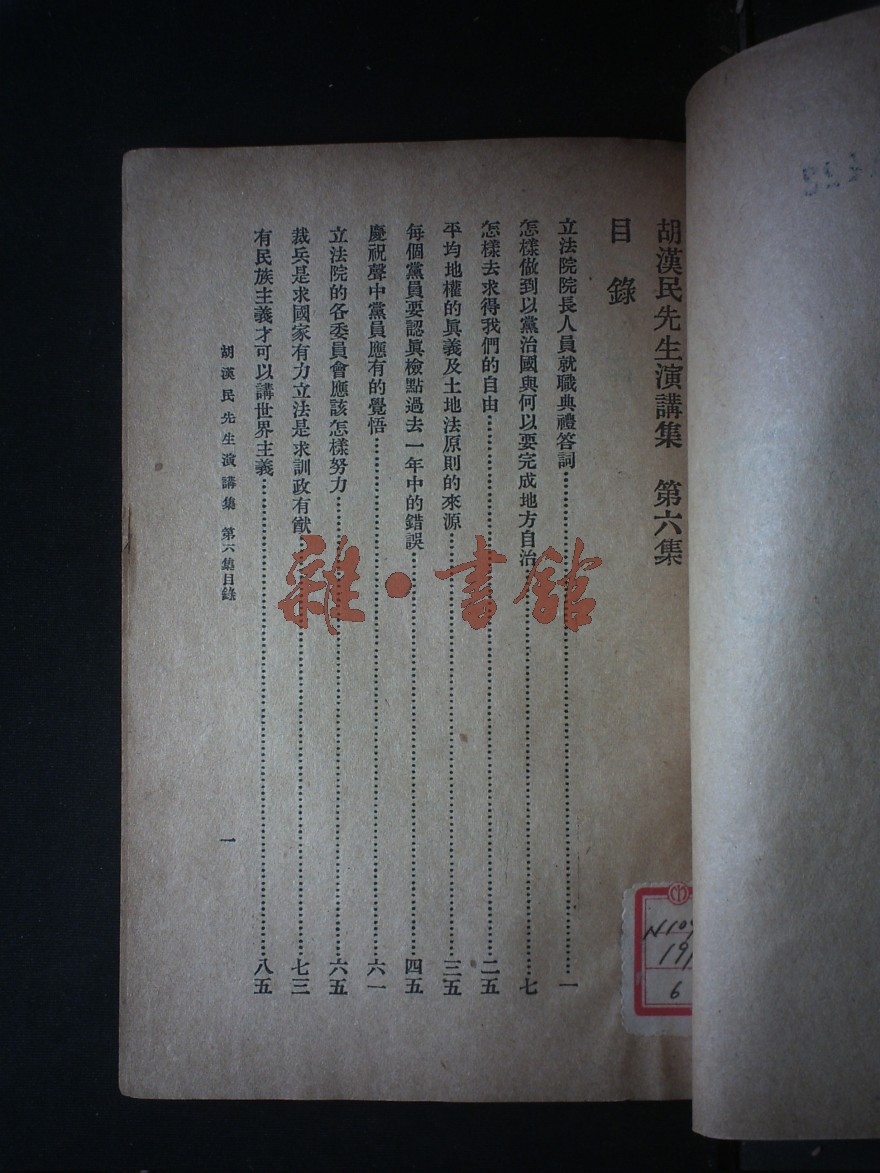 胡漢民先生演講集 第六集
目錄
立法院院長人員就職典禮答詞……一
怎樣做到以黨治國與何以要完成地方自治……七
怎樣去求得我們的自由……二五
平均地權的眞義及土地法原則的來源……三五
每個黨員要認眞檢點過去一年中的錯誤……四五
慶祝聲中黨員應有的覺悟……六一
立法院的各委員會應該怎樣努力……六五
裁兵是求國家有力立法是求訓政有猷……七三
有民族主義才可以講世界主義……八五
胡漢民先生演講集 第六集目錄 一
雜·書館
6